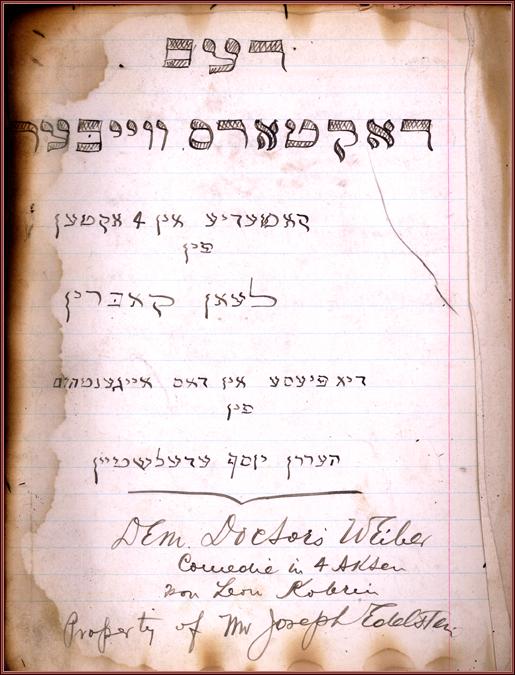 דעם
דאקטארס ווייבער
קאמעדיע אין 4 אקטען
פין
לעאן קאברין
דיא פיעסע אין דאס אייגענטהום
פין
העררן יוסף עדעלשטיין
Dem Doctors Weiber
Comedie in 4 Akten
von Leon Kobrin
Property of Mr Joseph Edelstein